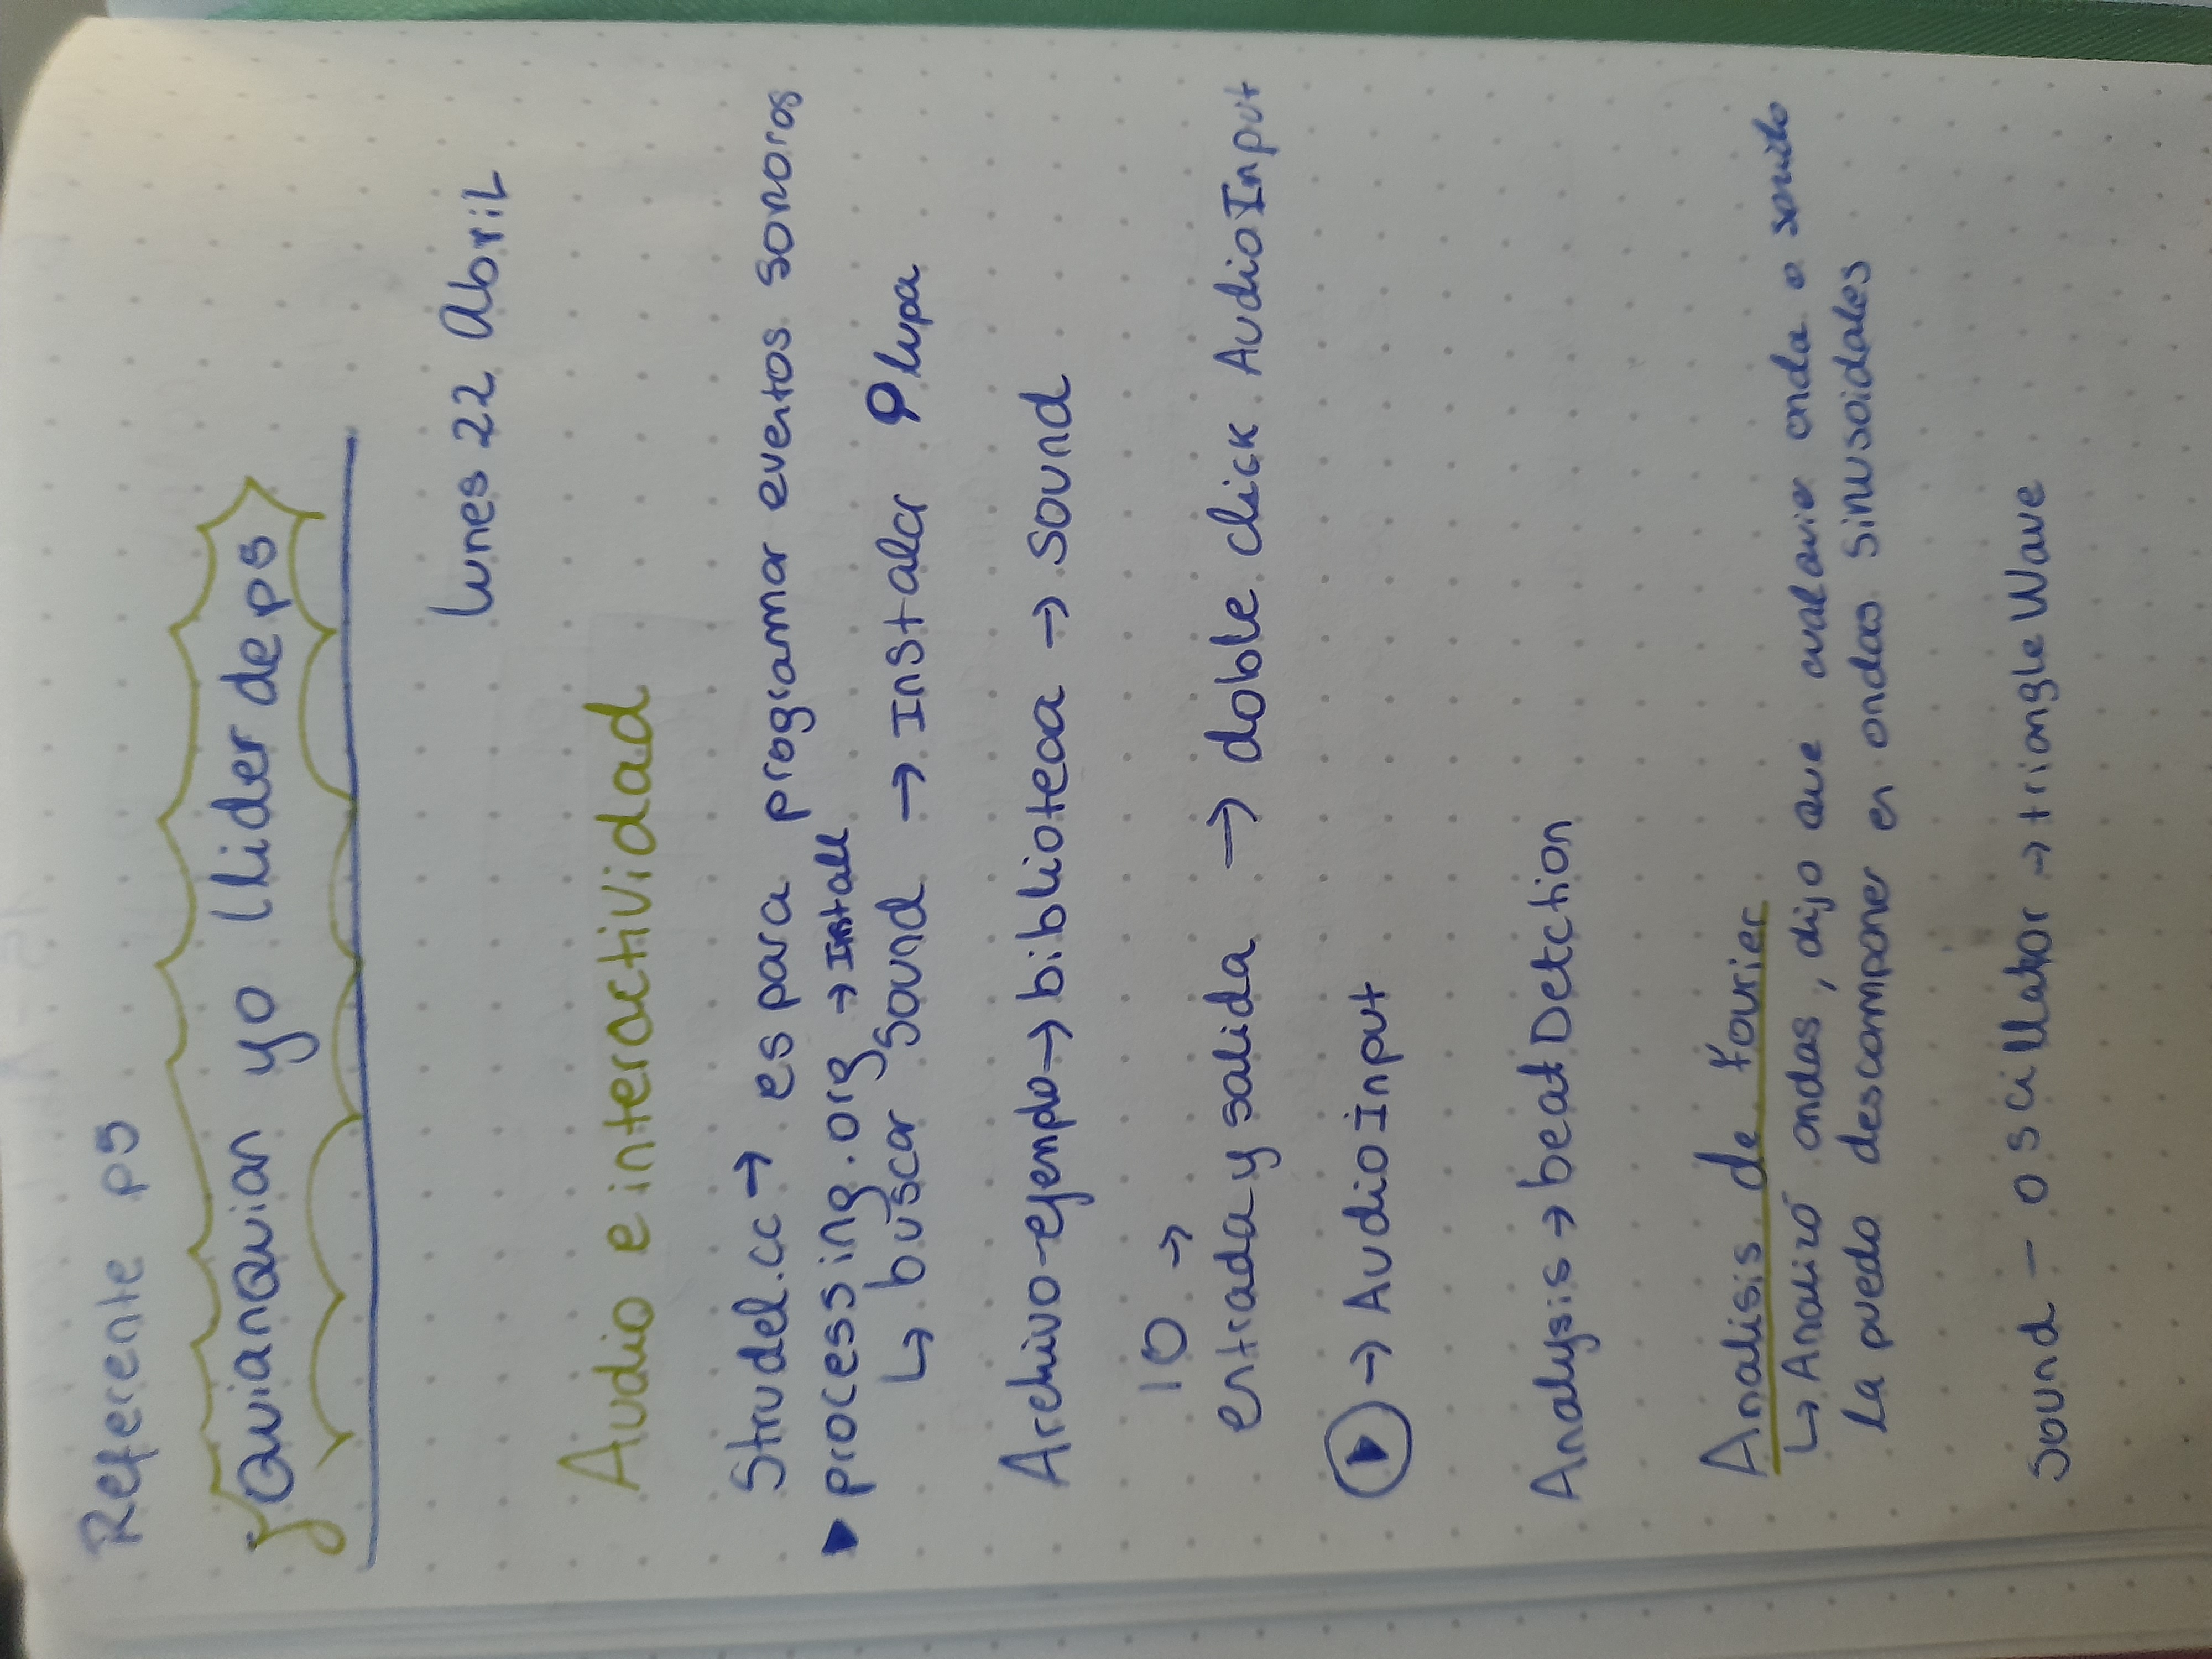 Referente p5
QuianQuian yo llider de p5
lunes 22 Abril
Audio e interactividad
Strudel.cc → es para programar eventos sonoros
▶ processing.org → Install
↳ buscar sound → Instalar lupa
Archivo-ejemplo → biblioteca → sound
IO →
entrada y salida → doble click AudioInput
▶ → Audio input
Analysis → beat Detction
Analisis de Fourier
↳ Analizó ondas, dijo que cualquier onda o sonido
la puedo descomponer en ondas sinusoidales
sound - oscillator → triangle Wave